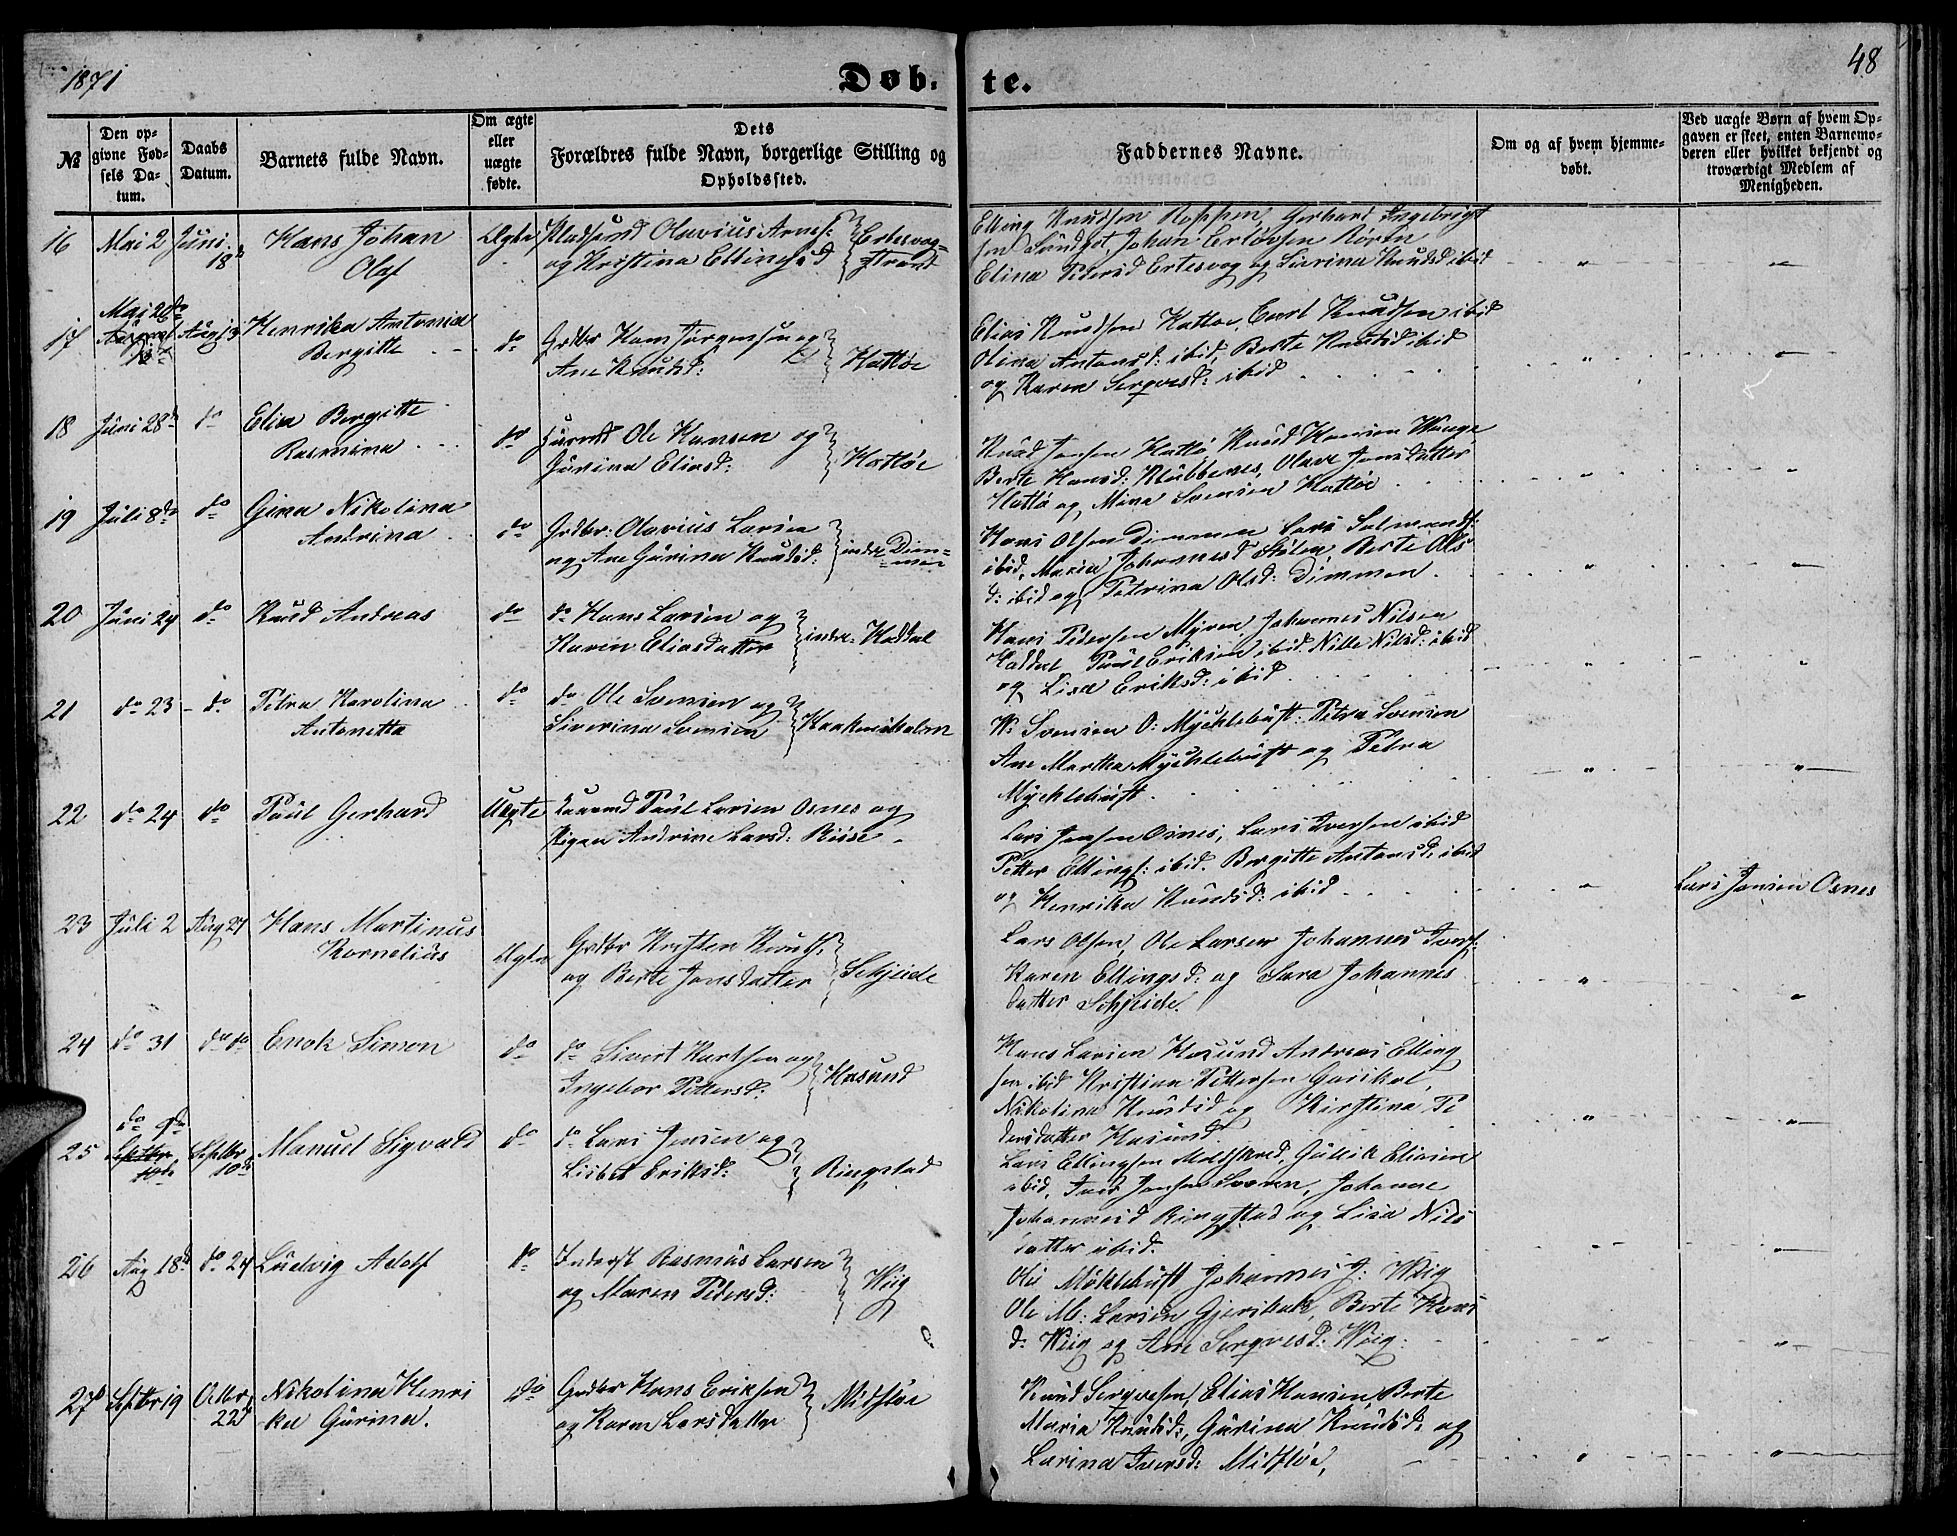 1871
Døb-
te.
48
№
Den op-
givne Fød-
sels Da-
tum.
Daabs
Datum.
Barnets fulde Navn.
Om ægte
eller
uægte
fødte.
Dets
Forældres fulde Navn, borgerlige Stilling og
Opholdssted.
Faddernes Navne.
Om og af hvem hjemme-
døbt.
Ved uægte Børn af hvem Op-
gaven er skeet, enten Barnemo-
deren eller hvilket bekjendt og
troværdigt Medlem af
Menigheden.
16 Mai 2 Juni 18de
Hans Johan
Olaf
Ægte
Olavius Arnes:
og Kristina Ellingsd
Ertesvog-
strand
Elling Knudsen Roppen, Gerhard Ingebrigt
sen Johan Erlovsen Røren
Elina Pedersd Ertesvog og Sivrina Knudsd ibid
17 Mai 20de August Aug 13
Henrika Antonia
Bergitte
do
Grdbr Hans Jørgensen og
Ane Knudsd:
Hatløe
Elias Knudsen Hatløe, Knudsen ibid
Olina Antonsd: ibid, Berte Knudsd ibid
og Karen Sergvesd: ibid
18 Juni 28de do
Elisa Bergitte
Rasmina
do
Ole Hansen og
Gurina Eliasd:
Hatløe
Knud Jonsen Hatlø, Knud Hansen
Berte Hansd: Klubbenes, Olave Jonsdatter
Hatlø og Mina Svensen Hatløe
19 Juli 8de do
Gina Nikolina
Andrina
do
Grdbr: Olavius Larsen
og Ane Gurina Knudsd:
indre Dim-
men
Hans Olsen Dimmen Lars Salmonds:
ibid, Maria Johannesd Berte Ols
d: ibid og Petrina Olsd: Dimmen
20 Juni 24 do
Knud Andreas
do
do Hans Larsen og
Karen Eliasdatter
indre Haddal
Hans Pedersen Myren Johannes Nilsen
Haddal Paul Eriksen ibid. Nille Nilsd: ibid
og Lisa Eriksd: ibid
21 do 23 do
Petra Karolina
Antonetta
do
do Ole Svensen og
Siverina Svensen
W: Svensen O: Myklebust: Petra Svensen
Ane Martha Myklebust og Petra
Myklebust
22 do 24 do
Paul Gerhard
Uægte
Paul Larsen Osnes og
Pigen Andrine Larsd: Riise
Lars Jensen Osnes, Lars Iversen ibid
Petter Ellings: ibid. Bergitte Antonsd: ibid
og Henrika Knudsd: ibid
Lars Jonsen Osnes
23 Juli 2 Aug 27
Hans Martinus
Kornelius
Ægte
Grdbr Knuds:
og Berte Jonsdatter
Skjeide
Lars Olsen, Ole Larsen Johannes Ivers:
Karen Ellingsd: og Sara Johannes
datter Schjeide.
24 do 31 do do
Enok Simon
do
do Sivert Knutsen og
Ingebor Pettersd:
Hasund
Hans Larsen Hasund Andreas Elling
sen ibid Kristian Pettersen
Nikolina Knudsd og Kirstina Pe
dersdatter Hasund
25 do 9de Septbr 10de Septbr 10de
Manuel Sigvald
do
do Lars Jensen og
Lisbet Eriksd:
Ringstad
Lars Ellingsen Gullik Eliasen
ibid, Iver Jensen Johanne
Johannesd Ringstad og Lisa Nils
datter ibid.
26 Aug 18de do 24
Ludvig Adolf
do
Inderst Rasmus Larsen
og Maren Pedersd:
Wiig
Ole Myklebust Johannes J: Wiig
Ole M: Larsen Gjerskak, Berte Hans
d: Wiig og Ane Sergvesd: Wiig.
27 Septbr 19 Octbr 22de
Nikolina Henri
ka Gurina.
do
Grdbr Hans Eriksen
og Karen Larsdatter
Midtløe
Knud Sergvesen, Elias Hansen, Berte
Maria Knudsd:, Gurina Knudsd: og
Larina Iversd: Midtløe,